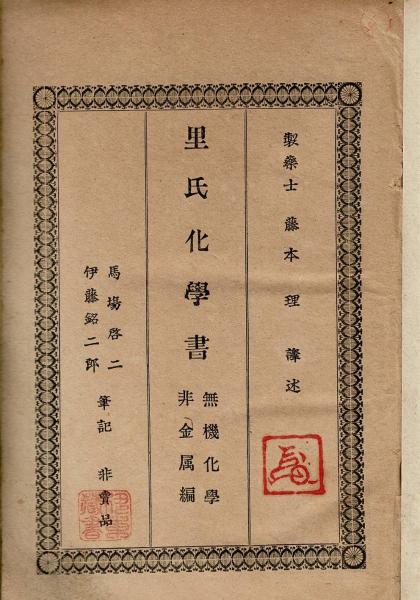 製藥士 藤本理 譯述
里氏化學書
無機化學
非金属編
馬場啓二
伊藤銘二郎
筆記 非賣品